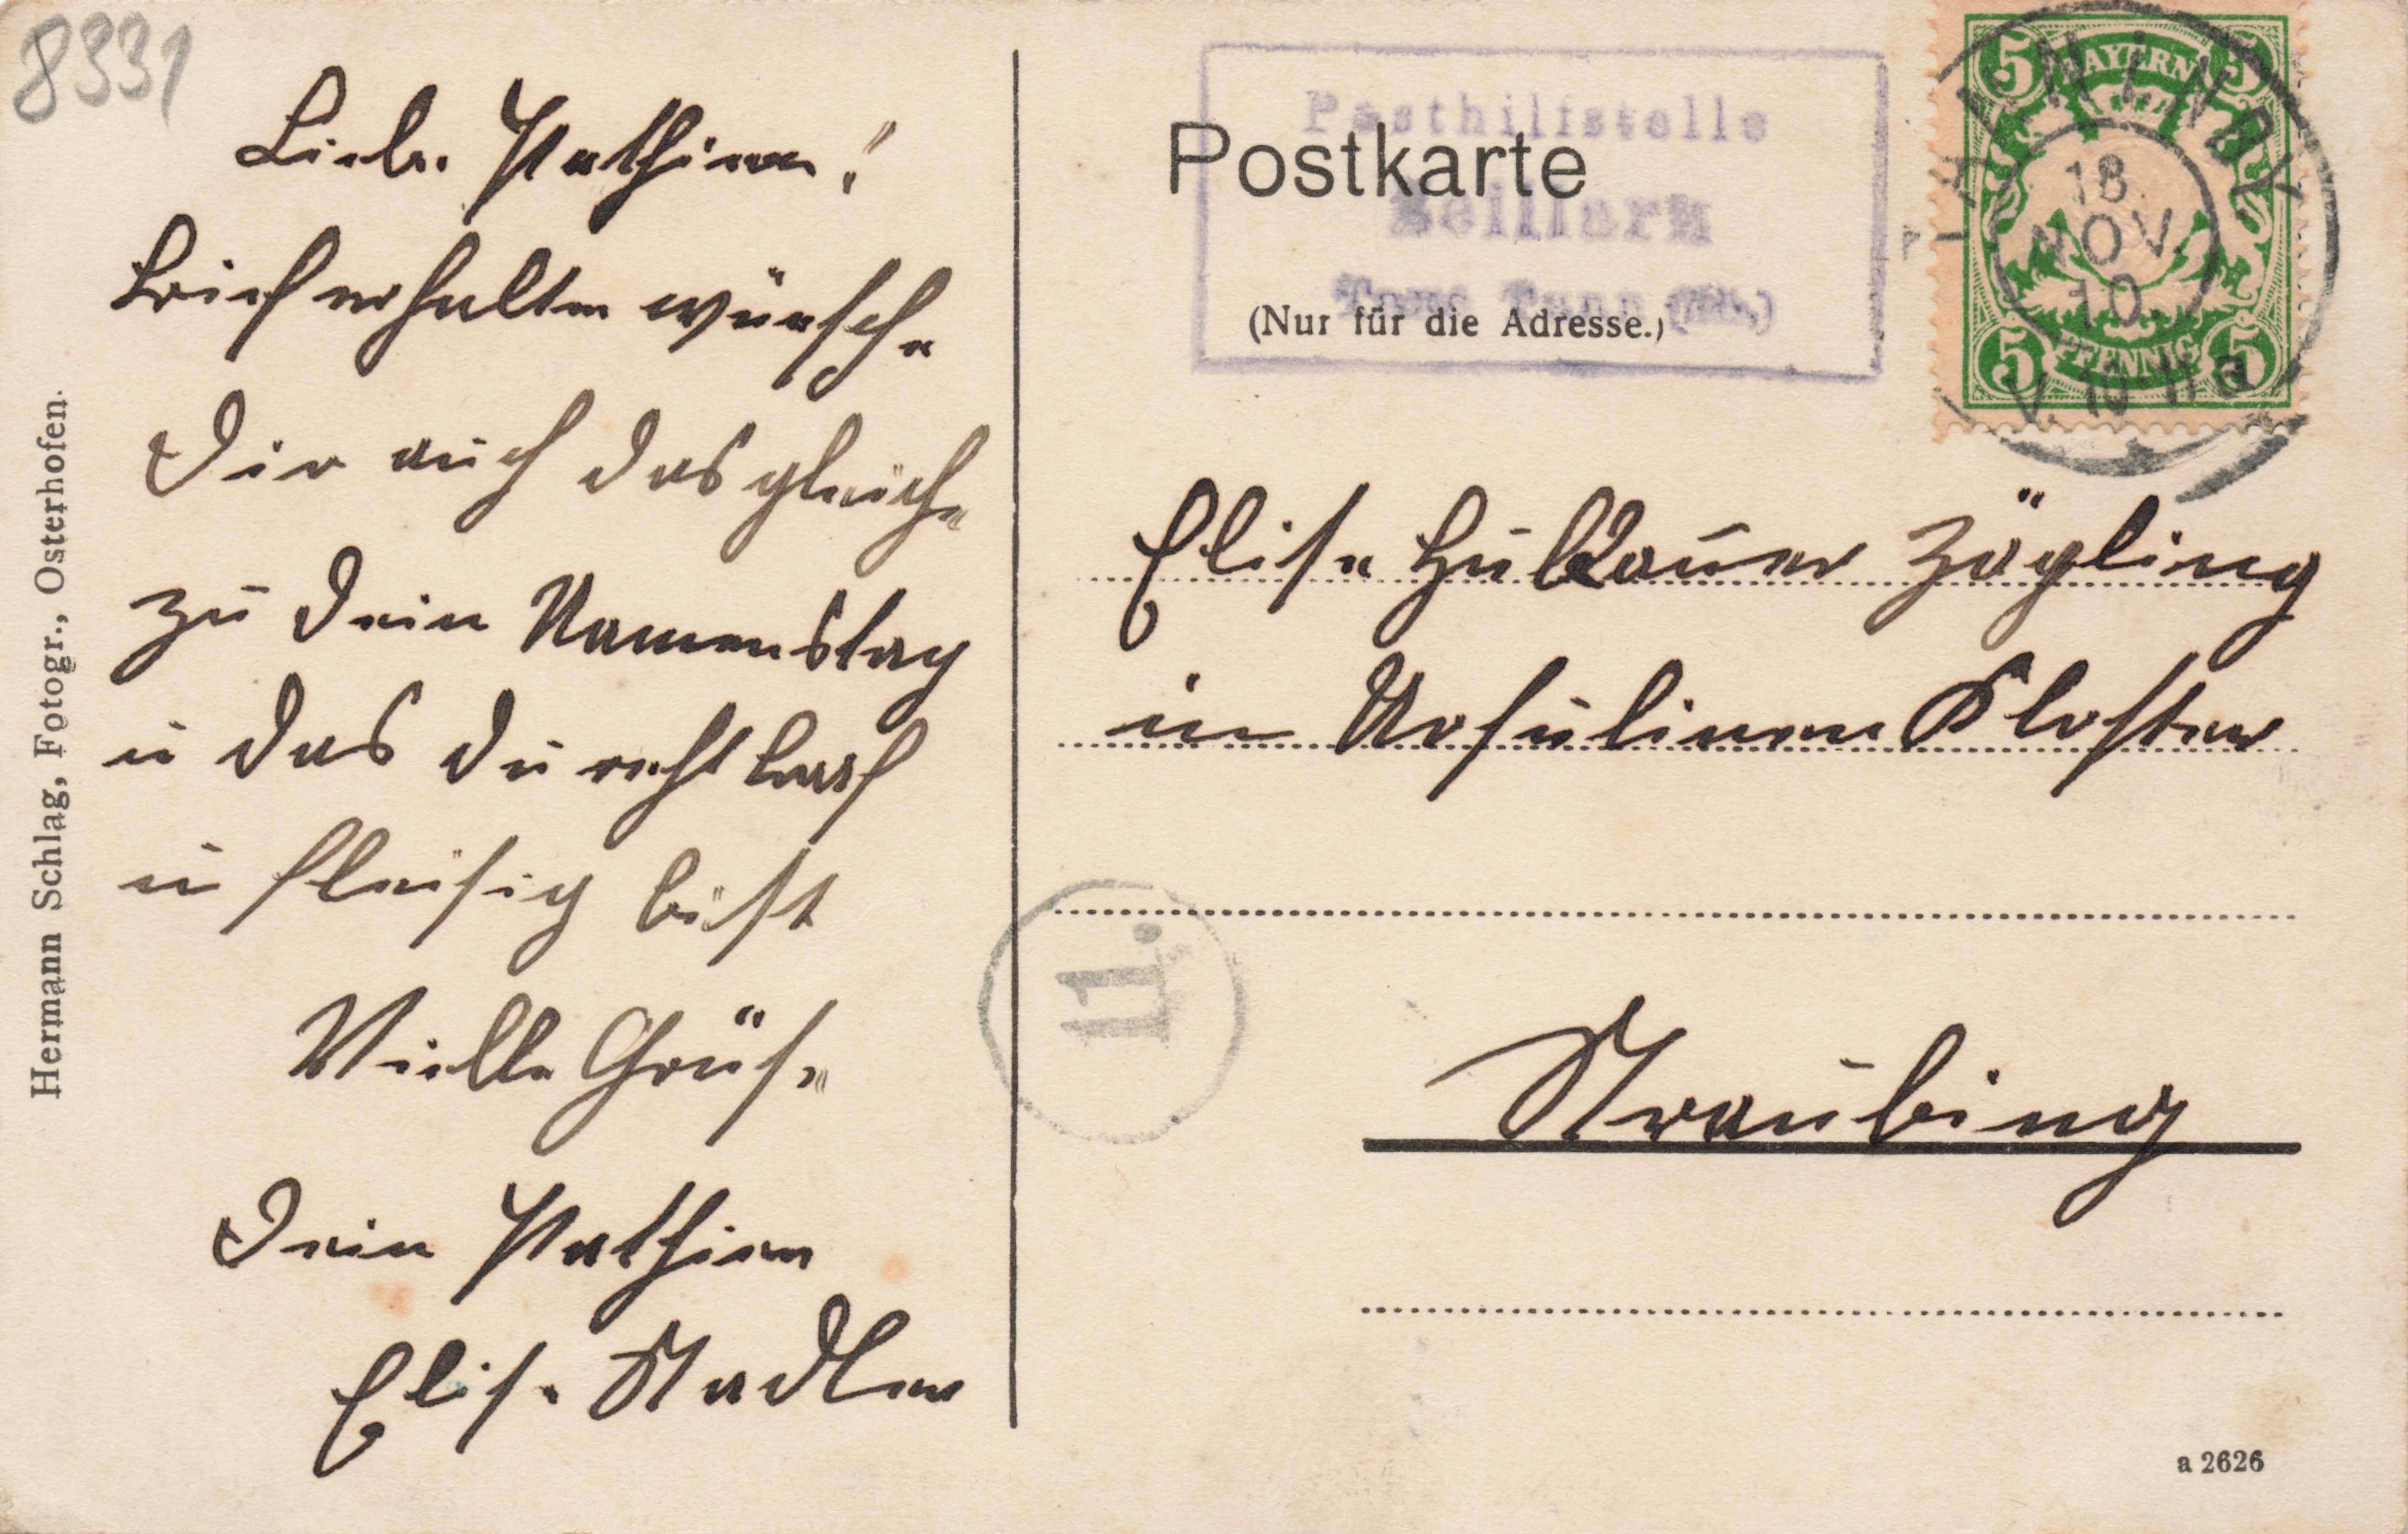 8331
Liebe Pathinn!
Brief erhalten wünsche
Dir auch das gleiche
zu Dein Namenstag
u das Du recht brav
u fleisig bist
Vielle Grüße
Dein Pathinn
Elise Stadler
Hermann Schlag, Fotogr., Osterhofen.
Posthilfstelle
Postkarte
(Nur für die Adresse.)
BAYERN
5 5
18.
NOV.
10.
5 PFENNIG 5
Elise Zögling
in Ursulinen Kloster
11.
Straubing
a 2626